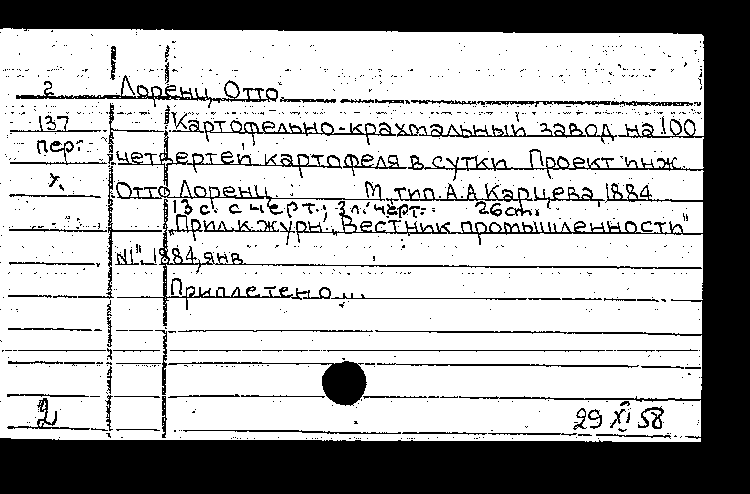 2 Лоренц, Отто
137 Картофельно-крахмальный завод на 100
пер. четвертей картофеля в сутки. Проект инж.
Отто Лоренц. М., тип. А.А. Карцева, 1884
13 с. с черт.; 3 л. черт. 26 cm.
"Прил. к журн. "Вестник промышленности"
N1". 1884, янв
Приплетено...
2 29 XI 58